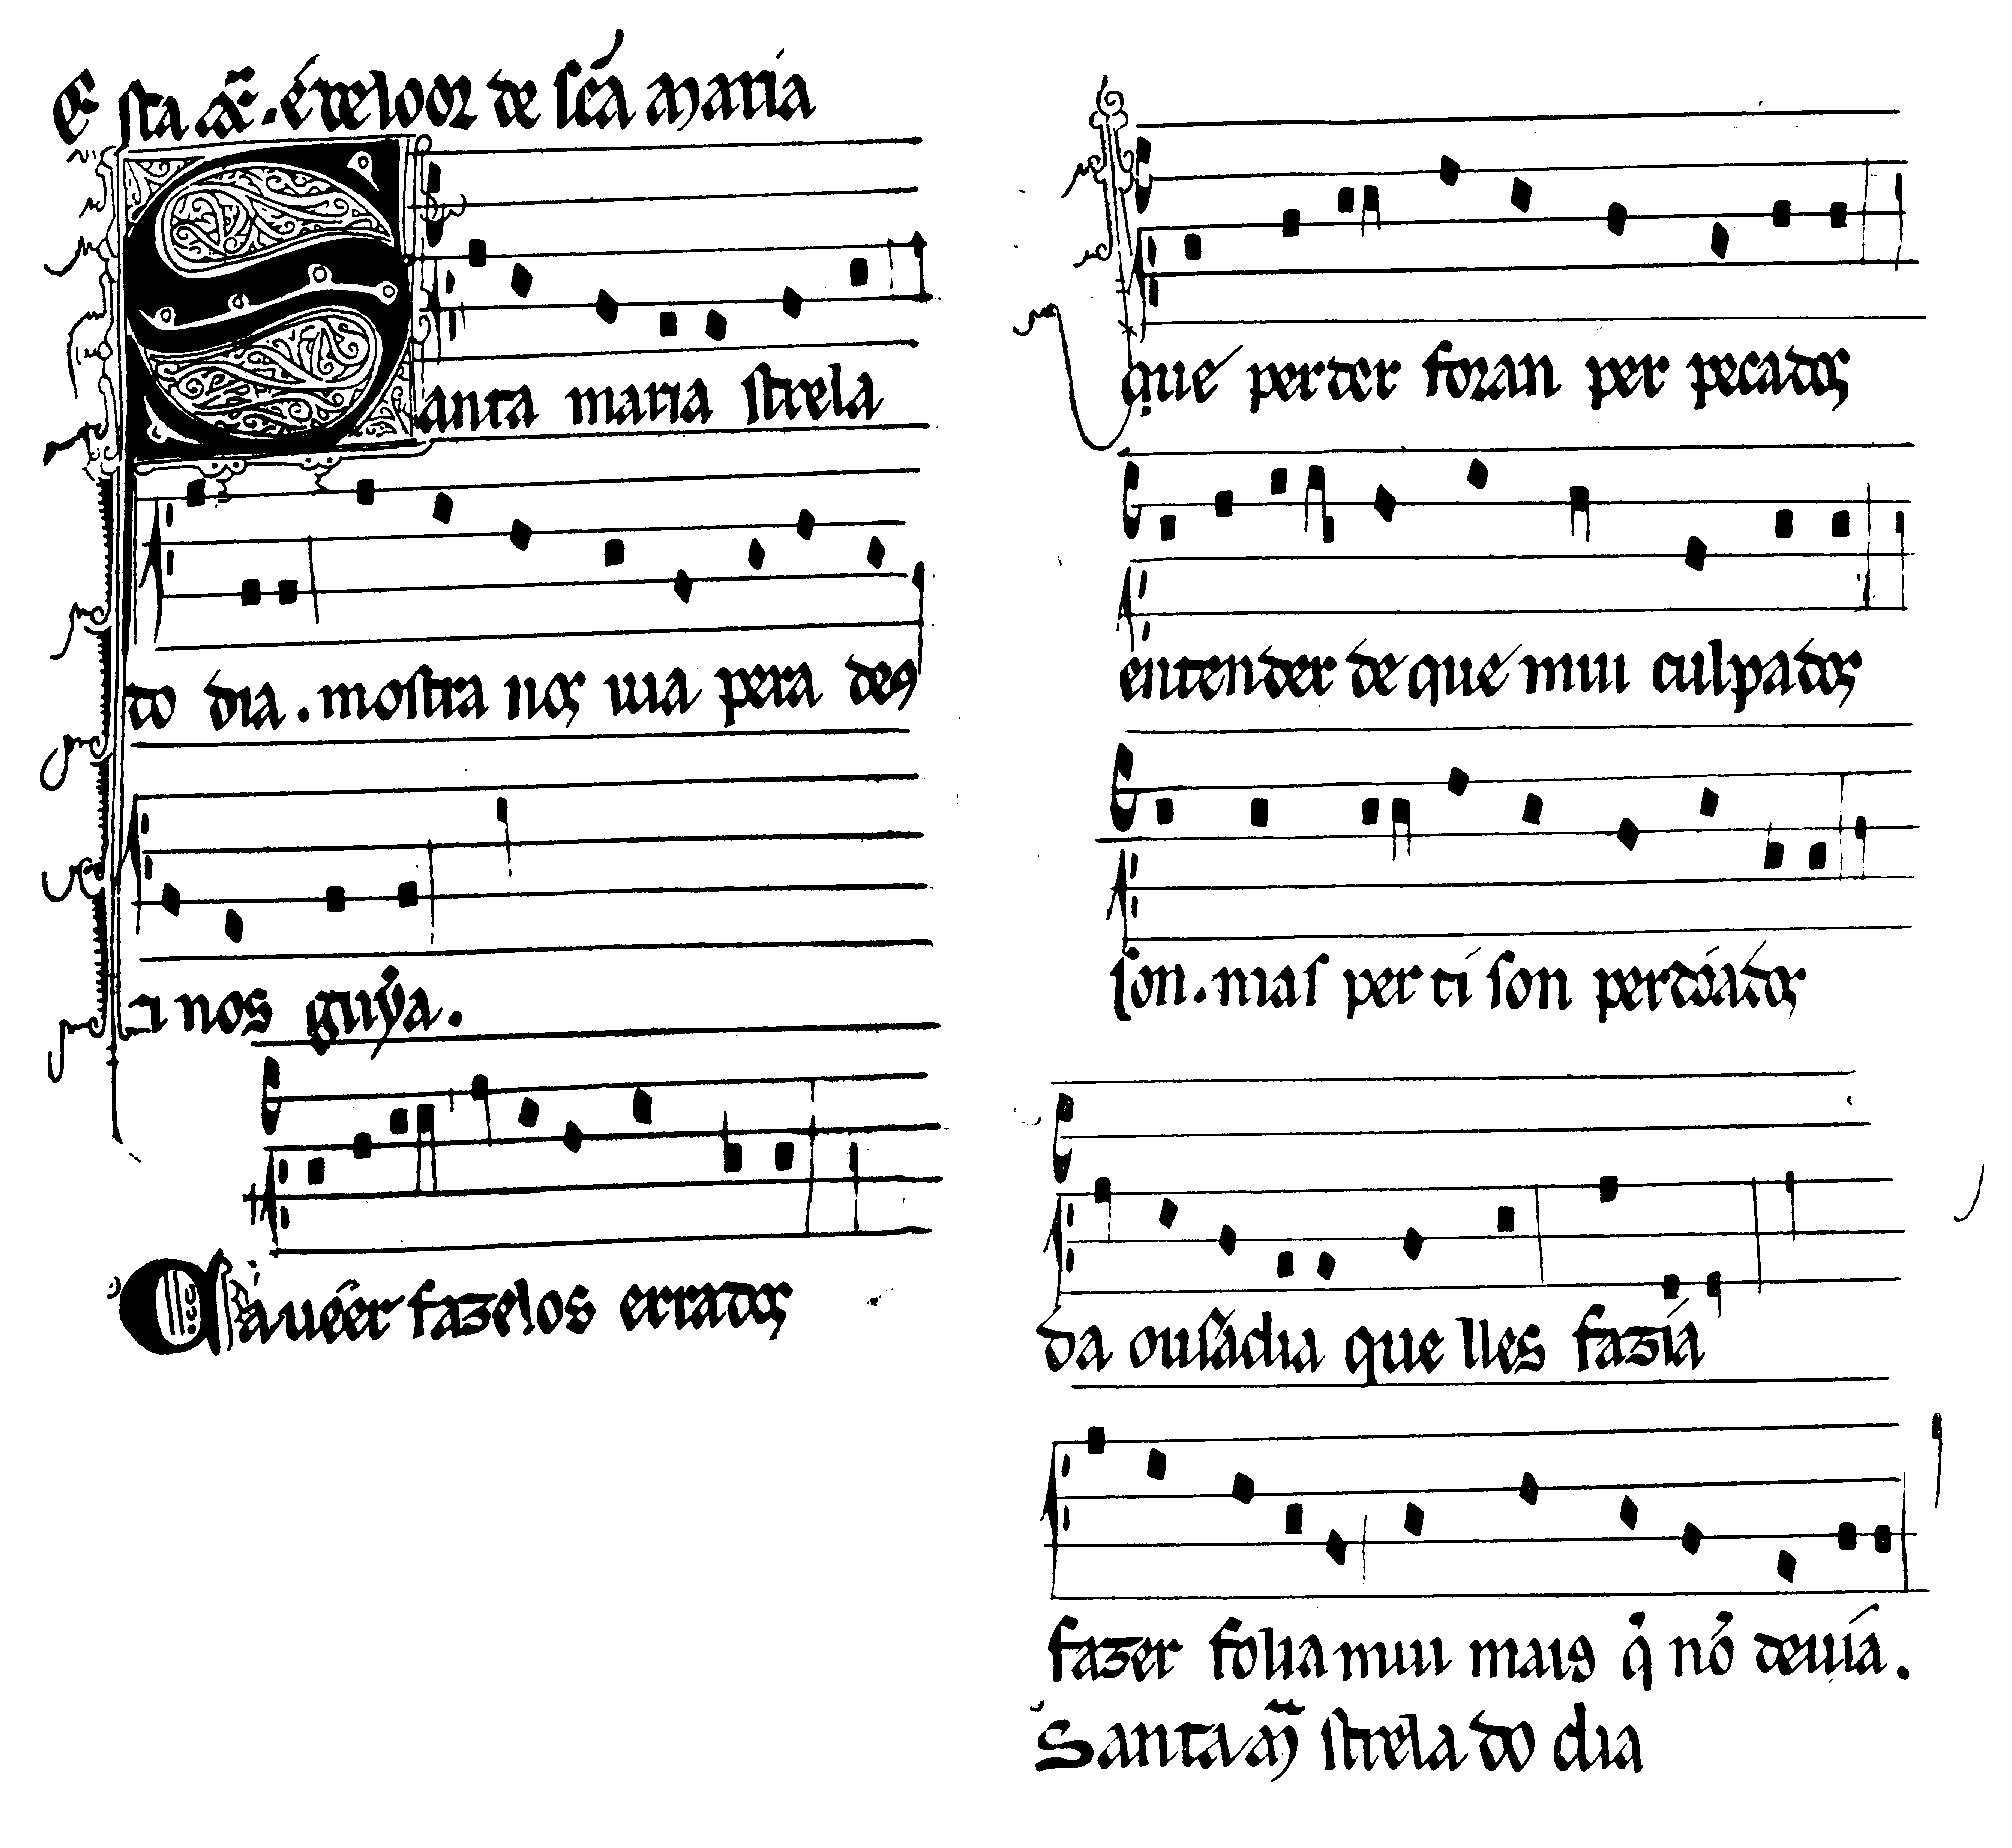 Esta .é de loor de scã maria
Santa maria strela
do dia. mostra nos uia pera deus
i nos guýa.
a uéer fazelos errados
que perder foran per pecados
entender de que mui culpados
son. mas per ti son perdõados
da ousadia que lles fazia
fazer folia mui mais q̇ nõ deuia.
Santa m̃ strela do dia